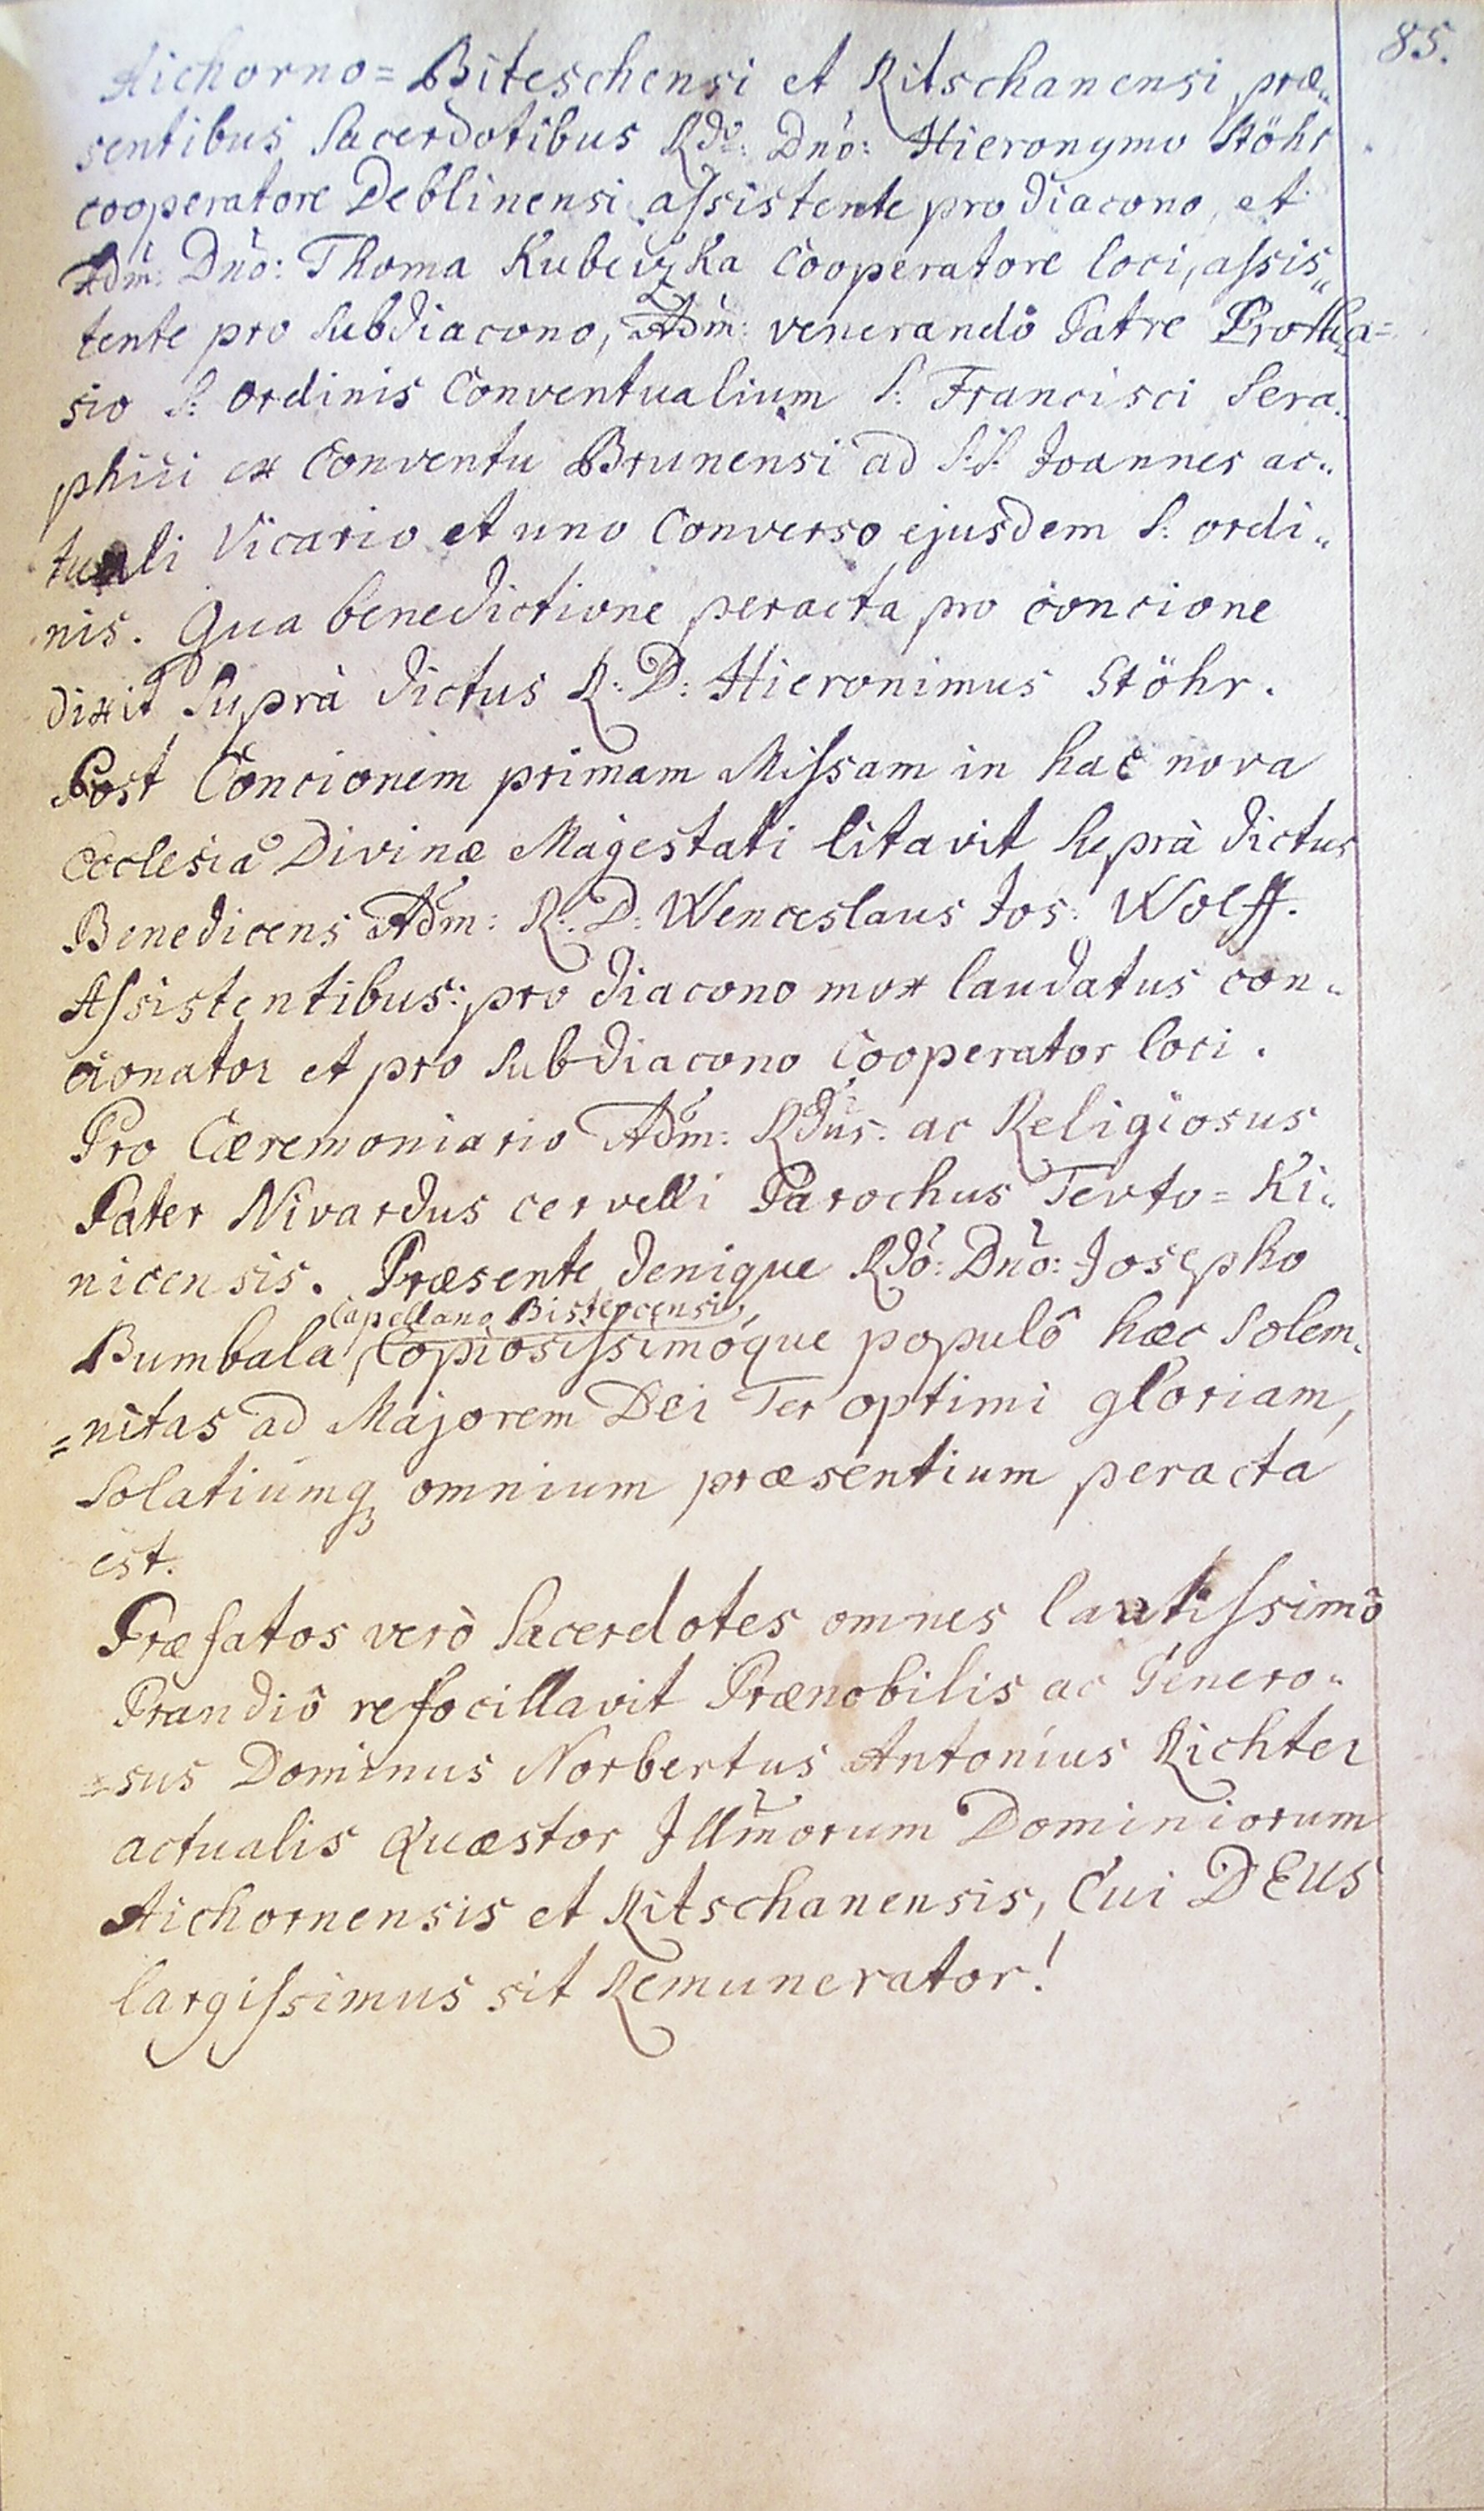 85.
Aichorno= Biteschensi et Ritschanensi præ„
sentibus Sacerdotibus Rdo: Dno: Hieronymo Stöhr
cooperatore Deblinensi assistente pro diacono, et
Adm: Dno: Thoma Kubeczka Cooperatore loci, assis„
tente pro Subdiacono, Adm: venerandô Patre Protha=
sio S: Ordinis Conventualium S: Francisci Sera„
phici ex Conventu Brunensi ad S:S: Joannes ac„
tuali Vicario et uno Converso ejusdem S: ordi„
nis. Qua benedictione peracta pro concione
dixit Suprà dictus R: D: Hieronimus Stöhr.
Post Concionem primam Missam in hac nova
Ecclesia Divinæ Magestati litavit Suprà dictus
Benedicens Adm: R: D: Wenceslaus Jos: Wolff.
Assistentibus: pro diacono mox laudatus con„
cionator et pro Subdiacono Cooperator loci.
Pro Cæremoniario Adm: Rdus: ac Religiosus
Pater Nivardus cervelli Parochus Tevto= Ki„
nicensis. Præsente denique Rdo: Dno: Josepho
Capellano Bistercensi,
Bumbala Copiosissimóque populô hæc Solem„
=nitas ad Majorem Dei Ter optimi gloriam,
Solatiumq omnium præsentium peracta
est.
Præfatos verò Sacerdotes omnes lautissimô
Prandiô refocillavit Prænobilis ac Genero„
=sus Dominus Norbertus Antonius Richter
actualis Quæstor Illmorum Dominiorum
Aichornensis et Ritschanensis, Cui DEUS
largissimus sit Remunerator!